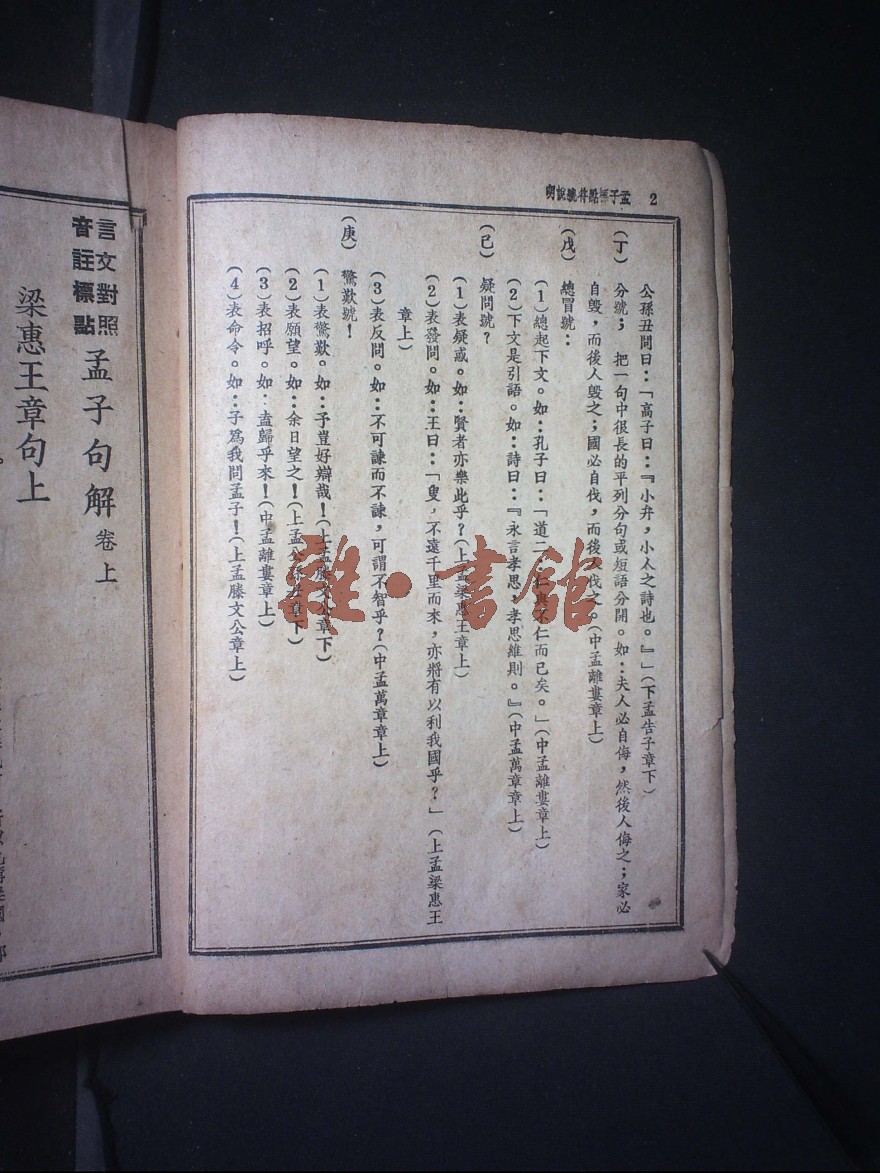 孟子標點符號說明 2
公孫丑問曰：「高子曰：『小弁，小人之詩也。』」（下孟告子章下）
（丁） 分號； 把一句中很長的平列分句或短語分開。如：夫人必自侮，然後人侮之；家必
自毁，而後人毁之；國必自伐，而後人伐之。（中孟離婁章上）
（戊） 總冒號：
（1）總起下文。如：孔子曰：「道二：仁與不仁而已矣。」（中孟離婁章上）
（2）下文是引語。如：詩曰：『永言孝思，孝思維則。』（中孟萬章章上）
（已） 疑問號？
（1）表疑或。如：賢者亦樂此乎？（上孟梁惠王章上）
（2）表發問。如：王曰：「叟，不遠千里而來，亦將有以利我國乎？」（上孟梁惠王
章上）
（3）表反問。如：不可諫而不諫，可謂不智乎？（中孟萬章章上）
（庚） 驚歎號！
（1）表驚歎。如：予豈好辯哉！（上孟滕文公章下）
（2）表願望。如：余日望之！（上孟公孫丑章下）
（3）表招呼。如：盍歸乎來！（中孟離婁章上）
（4）表命令。如：子爲我問孟子！（上孟滕文公章上）
言文對照
音註標點
孟子句解 卷上
梁惠王章句上
雜·書館